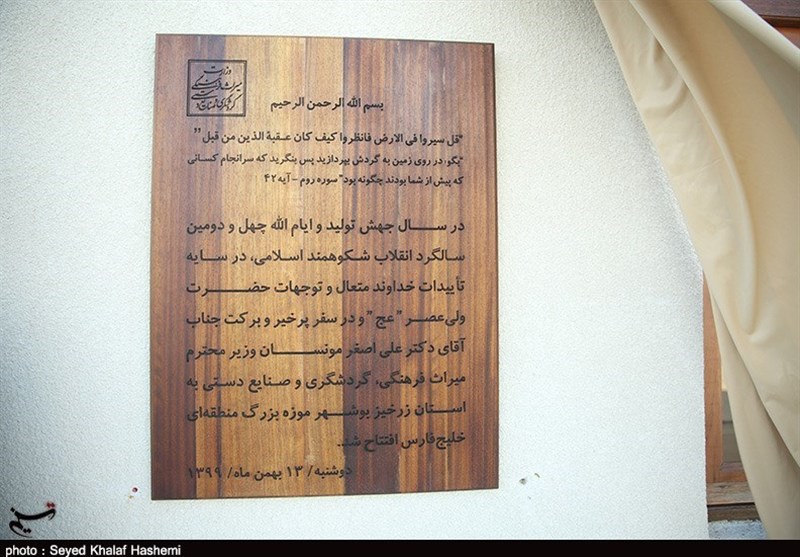 وزارت
میراث فرهنگی
گردشگری و صنایع دستی
بسم الله الرحمن الرحیم
"قل سیروا فی الارض فانظروا کیف کان عـقبة الذین من قبل"
"بگو: در روی زمین به گردش بپردازید پس بنگرید که سرانجام کسانی
که پیش از شما بودند چگونه بود" سوره روم - آیه ۴۲
در ســـال جهش تولید و ایام الله چهل و دومین
سالگرد انقلاب شکوهمند اسلامی، در سـایه
تأییدات خداوند متعال و توجهات حضـــرت
ولی‌عصـــر "عج" و در سفر پرخیر و برکت جناب
آقای دکتر علی اصغر مونســـان وزیر محترم
میراث فرهنگی، گردشگری و صنایع دستی به
اسـتان زرخیز بوشـــهر موزه بزرگ منطقه‌ای
خلیج‌فارس افتتاح شد.
دوشنبه/ ۱۳ بهمن ماه/ ۱۳۹۹
تسنیم
photo : Seyed Khalaf Hashemi